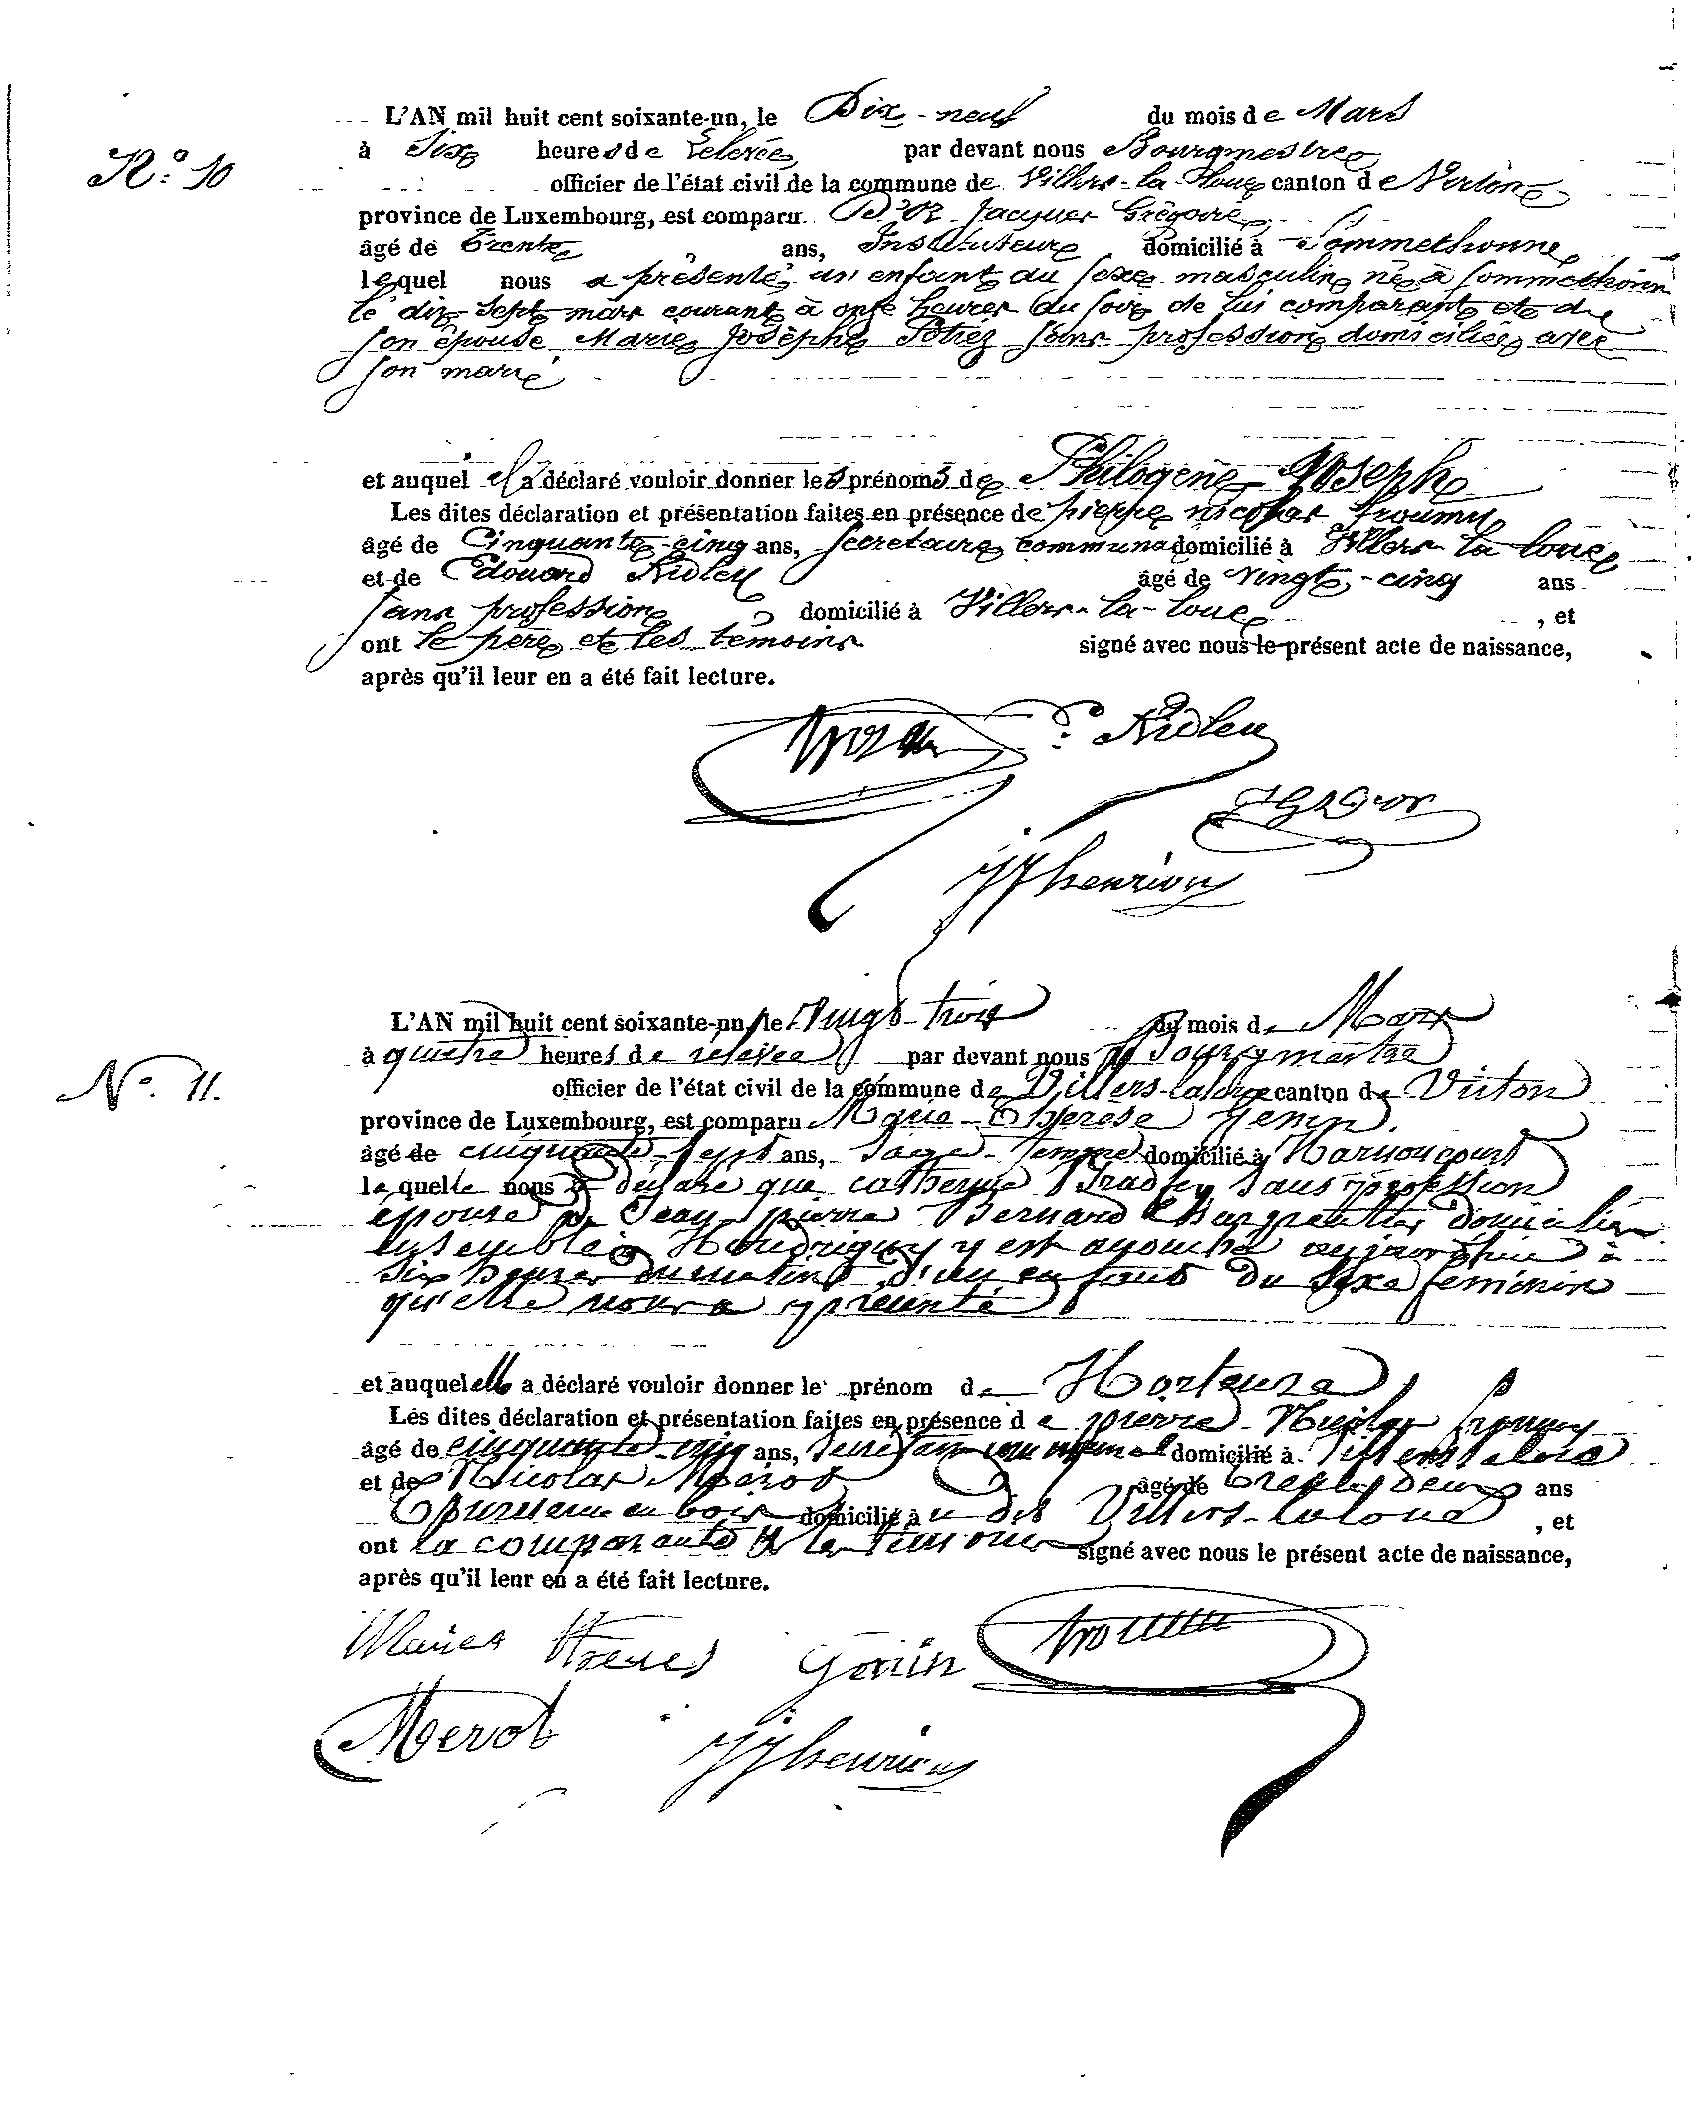 L'AN mil huit cent soixante-un, le Dix-neuf du mois de Mars
N.° 10
à Six heures de relevée, par devant nous Bourgmestre
officier de l'état civil de la commune de Villers-la-Loue canton de Virton
province de Luxembourg, est comparu D'or Jacques Grégoire,
âgé de Trente ans, Instituteur domicilié à Sommethonne,
lequel nous a présenté un enfant du sexe masculin né à Sommethonne
le dix-sept mars courant à onze heures du soir de lui comparant et de
son épouse Marie Josèphe Potiez sans profession domiciliée avec
son mari
et auquel il a déclaré vouloir donner les prénoms de Philogène Joseph
Les dites déclaration et présentation faites en présence de pierre nicolas
âgé de Cinquante-cinq ans, secrétaire communal domicilié à Villers-la-Loue
et de Edouard Ridley âgé de vingt-cinq ans
sans profession domicilié à Villers-la-Loue, et
ont le père et les témoins signé avec nous le présent acte de naissance,
après qu'il leur en a été fait lecture.
JG D'or
JJ henrion
L'AN mil huit cent soixante-un, le Vingt-trois du mois de Mars
à quatre heures de relevée par devant nous Bourgmestre
N.° 11.
officier de l'état civil de la commune de Villers-laloue canton de Virton
province de Luxembourg, est comparu Marie-Thérèse Genin.
âgé de cinquante-sept ans, Sage-femme domicilié à Harnoncourt
laquelle nous a déclaré que catherine sans profession
épouse de Jean pierre Bernard Charpentier domiciliés
ensemble à Houdrigny y est accouchée aujourd'hui à
six heures du matin d'un enfant du sexe féminin
qu'elle nous a présenté
et auquel elle a déclaré vouloir donner le prénom de Hortense
Les dites déclaration et présentation faites en présence de pierre-Nicolas
âgé de cinquante-cinq ans, secrétaire communal domicilié à Villerslaloue
et de Nicolas Merot âgé de Trente Deux ans
Tourneur en bois domicilié à u dit Villers-laloue, et
ont la comparante et les témoins signé avec nous le présent acte de naissance,
après qu'il leur en a été fait lecture.
Genin
Merot JJ henrion